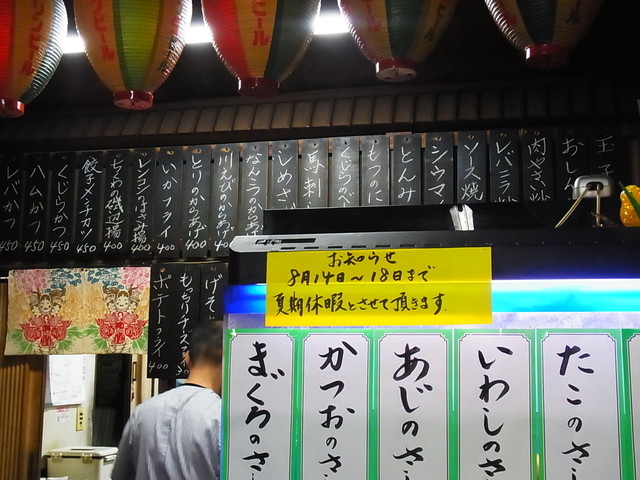 ビール
ビール
玉子
おしん
肉やさい炒
レバニラ炒
ソース焼
シウマ
とんみ
もつのに
くじらのベ
馬刺
しめさ
なんこつのからあ
川えびのからあげ
とりのからあげ 400
いかフライ 400
レンコンはさみ揚 400
ちくわの磯辺揚 400
餃子 メンチカツ 450
くじらかつ 450
ハムかつ 450
レバかつ 450
げそ
もっちりチーズ
ポテトフライ 400
お知らせ
8月14日〜18日まで
夏期休暇とさせて頂きます
まぐろのさし
かつおのさ
あじのさし
いわしのさ
たこのさし